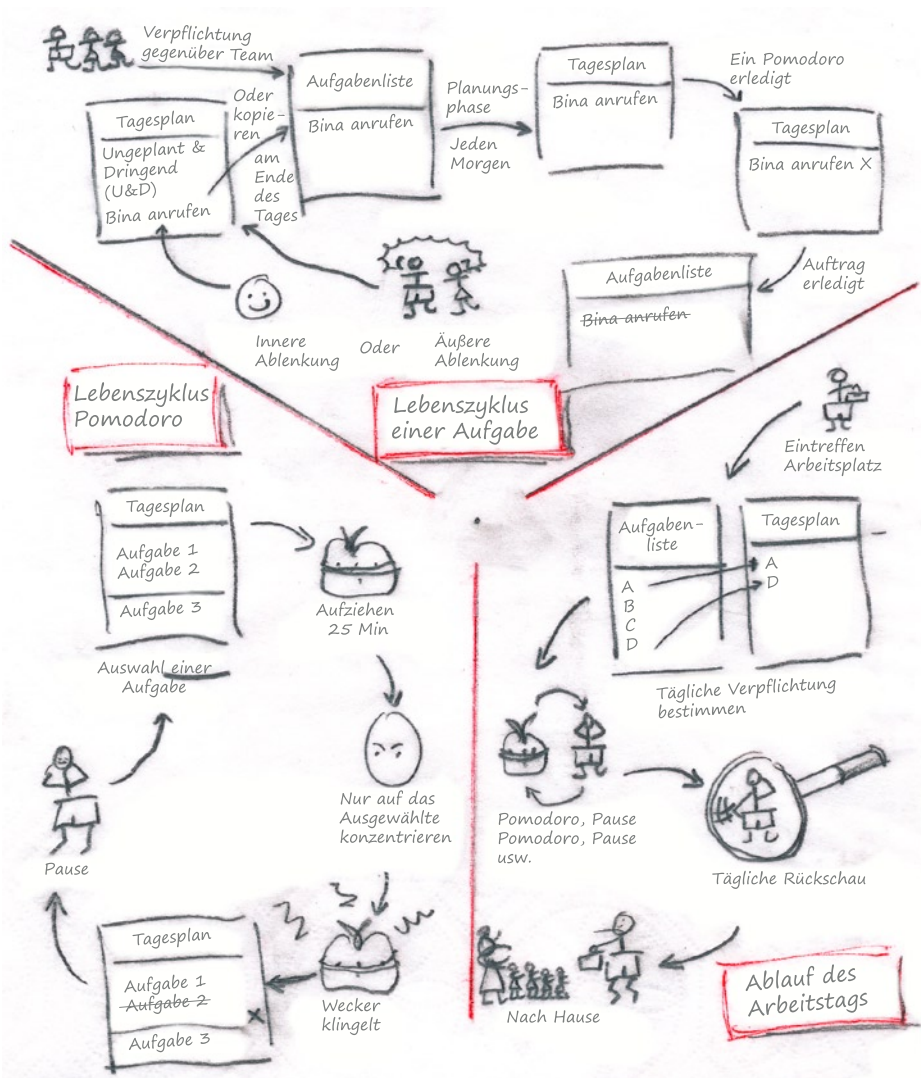 Verpflichtung
gegenüber Team
Tagesplan
Ungeplant &
Dringend
(U&D)
Bina anrufen
Oder
kopie-
ren
am
Ende
des
Tages
Aufgabenliste
Bina anrufen
Planungs-
phase
Jeden
Morgen
Tagesplan
Bina anrufen
Ein Pomodoro
erledigt
Tagesplan
Bina anrufen X
Auftrag
erledigt
Aufgabenliste
Bina anrufen
Innere
Ablenkung
Oder
Äußere
Ablenkung
Lebenszyklus
einer Aufgabe
Lebenszyklus
Pomodoro
Tagesplan
Aufgabe 1
Aufgabe 2
Aufgabe 3
Auswahl einer
Aufgabe
Aufziehen
25 Min
Nur auf das
Ausgewählte
konzentrieren
Wecker
klingelt
Tagesplan
Aufgabe 1
Aufgabe 2
X
Aufgabe 3
Pause
Eintreffen
Arbeitsplatz
Aufgaben-
liste
A
B
C
D
Tagesplan
A
D
Tägliche Verpflichtung
bestimmen
Pomodoro, Pause
Pomodoro, Pause
usw.
Tägliche Rückschau
Nach Hause
Ablauf des
Arbeitstags